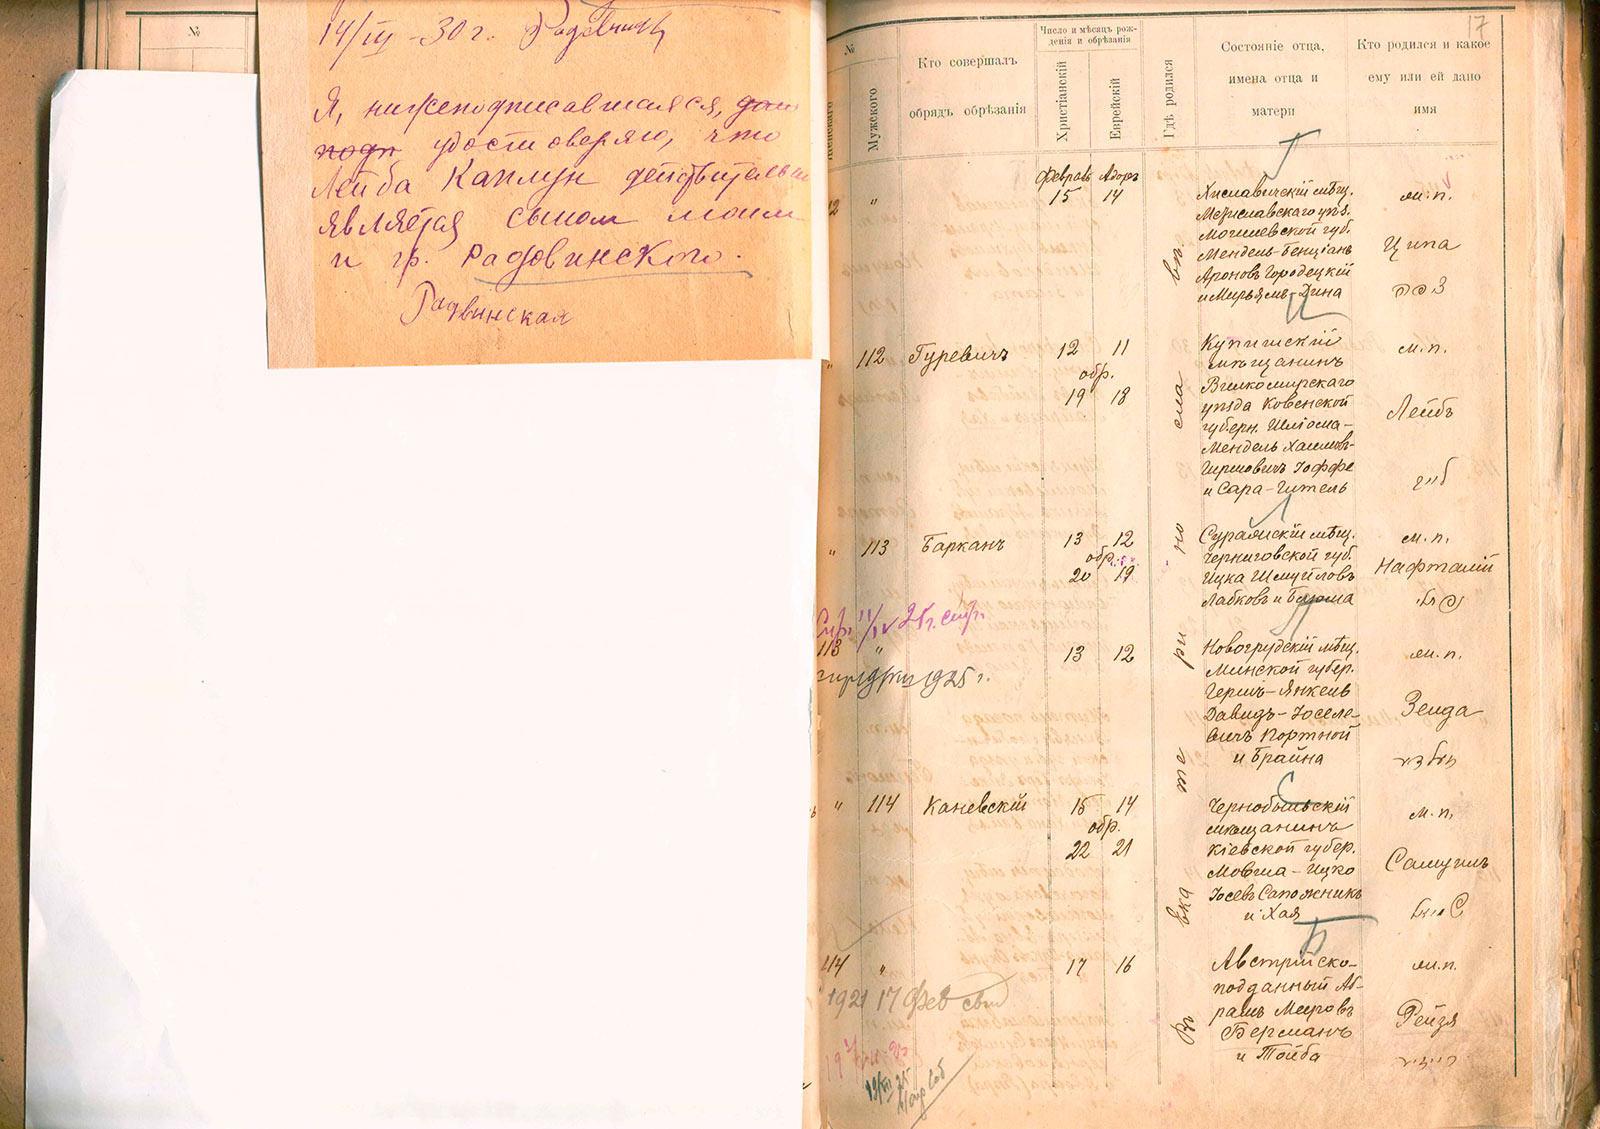 №
14/III - 30 г.
Я, нижеподписавшаяся,
удостоверяю, что
Лейба Каплун действительн
является сыном моим
и гр. Радовинского.
Радвинская
17
№
Мужского
Кто совершалъ
обрядъ обрѣзанія
Число и мѣсяцъ рож-
денія и обрѣзанія
Христіанскій
Еврейскій
Гдѣ родился
Состояніе отца,
имена отца и
матери
Кто родился и какое
ему или ей дано
имя
Въ Екатеринославѣ
Февраль Адоръ
" 15 14
Хиславичскій мѣщ.
Мстиславскаго уѣз.
Могилевской губ.
Мендель-Бенціанъ
Ароновъ Городецкій
и Мирьямъ-Дина
м.п.
Ципа
" 112 Гуревичъ 12 11
обр.
19 18
Купишскій
мѣщанинъ
Вилкомирскаго
уѣзда Ковенской
губерн. Шліома-
Мендель Хаимовъ-
Гиршовичъ Іоффе
и Сара-Гитель
м.п.
Лейбъ
לייב
" 113 Барканъ 13 12
обр.
20 19
Суражскій мѣщ.
Черниговской губ.
Ицка Шмуйловъ
Лабковъ и
м.п.
Нафталій
113 " 13 12
1925 г.
Новогрудскій мѣщ.
Минской губер.
Герш-Янкель
Давидъ-Іоселе-
вичъ Портной
и Брайна
м.п.
Зелда
" 114 Каневскій 15 14
обр.
22 21
Чернобыльскій
мѣщанинъ
Кіевской губер.
Мовша-Ицко
Іосевъ Сапожникъ
и Хая
м.п.
Самуилъ
114 " 17 16
1921 17 фев
Австрійско-
подданный Аб-
рамъ Мееровъ
Берманъ
и Тойба
м.п.
Рейзя